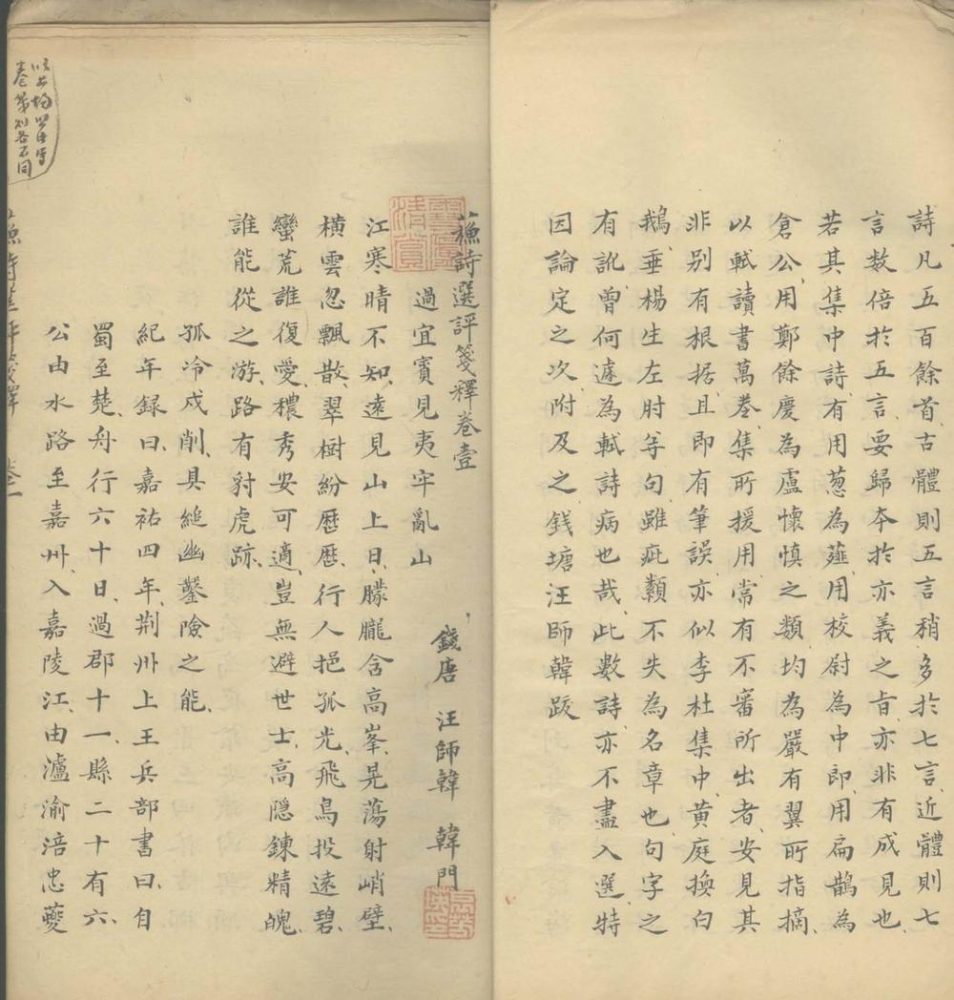 詩凡五百餘首古體則五言稍多於七言近體則七
言数倍於五言要歸夲於亦義之旨亦非有成見也
若其集中詩有用葱為薤用校尉為中郎用扁鵲為
倉公用鄭餘慶為盧懷慎之類均為嚴有翼所指摘
以軾讀書萬卷集所援用常有不審所出者安見其
非别有根据且即有筆誤亦似李杜集中黄庭換白
鵝垂楊生左肘等句雖疵纇不失為名章也句字之
有訛曾何遽為軾詩病也哉此数詩亦不盡入選特
因論定之次附及之錢塘汪師韓跋
蘓詩選評箋釋卷壹
錢唐 汪師韓 韓門
過宜賓見夷牢亂山
江寒晴不知遠見山上日朦朧含高峯晃蕩射峭壁
橫雲忽飄散翠樹紛歷歷行人挹孤光飛鳥投遠碧
蠻荒誰復愛穠秀安可適豈無避世士高隱鍊精魄
誰能從之游路有豺虎跡
孤冷戍削具縋幽鑿險之能
紀年録曰嘉祐四年荆州上王兵部書曰自
蜀至楚舟行六十日過郡十一縣二十有六
公由水路至嘉州入嘉陵江由瀘渝涪忠夔
卷第刘各不同